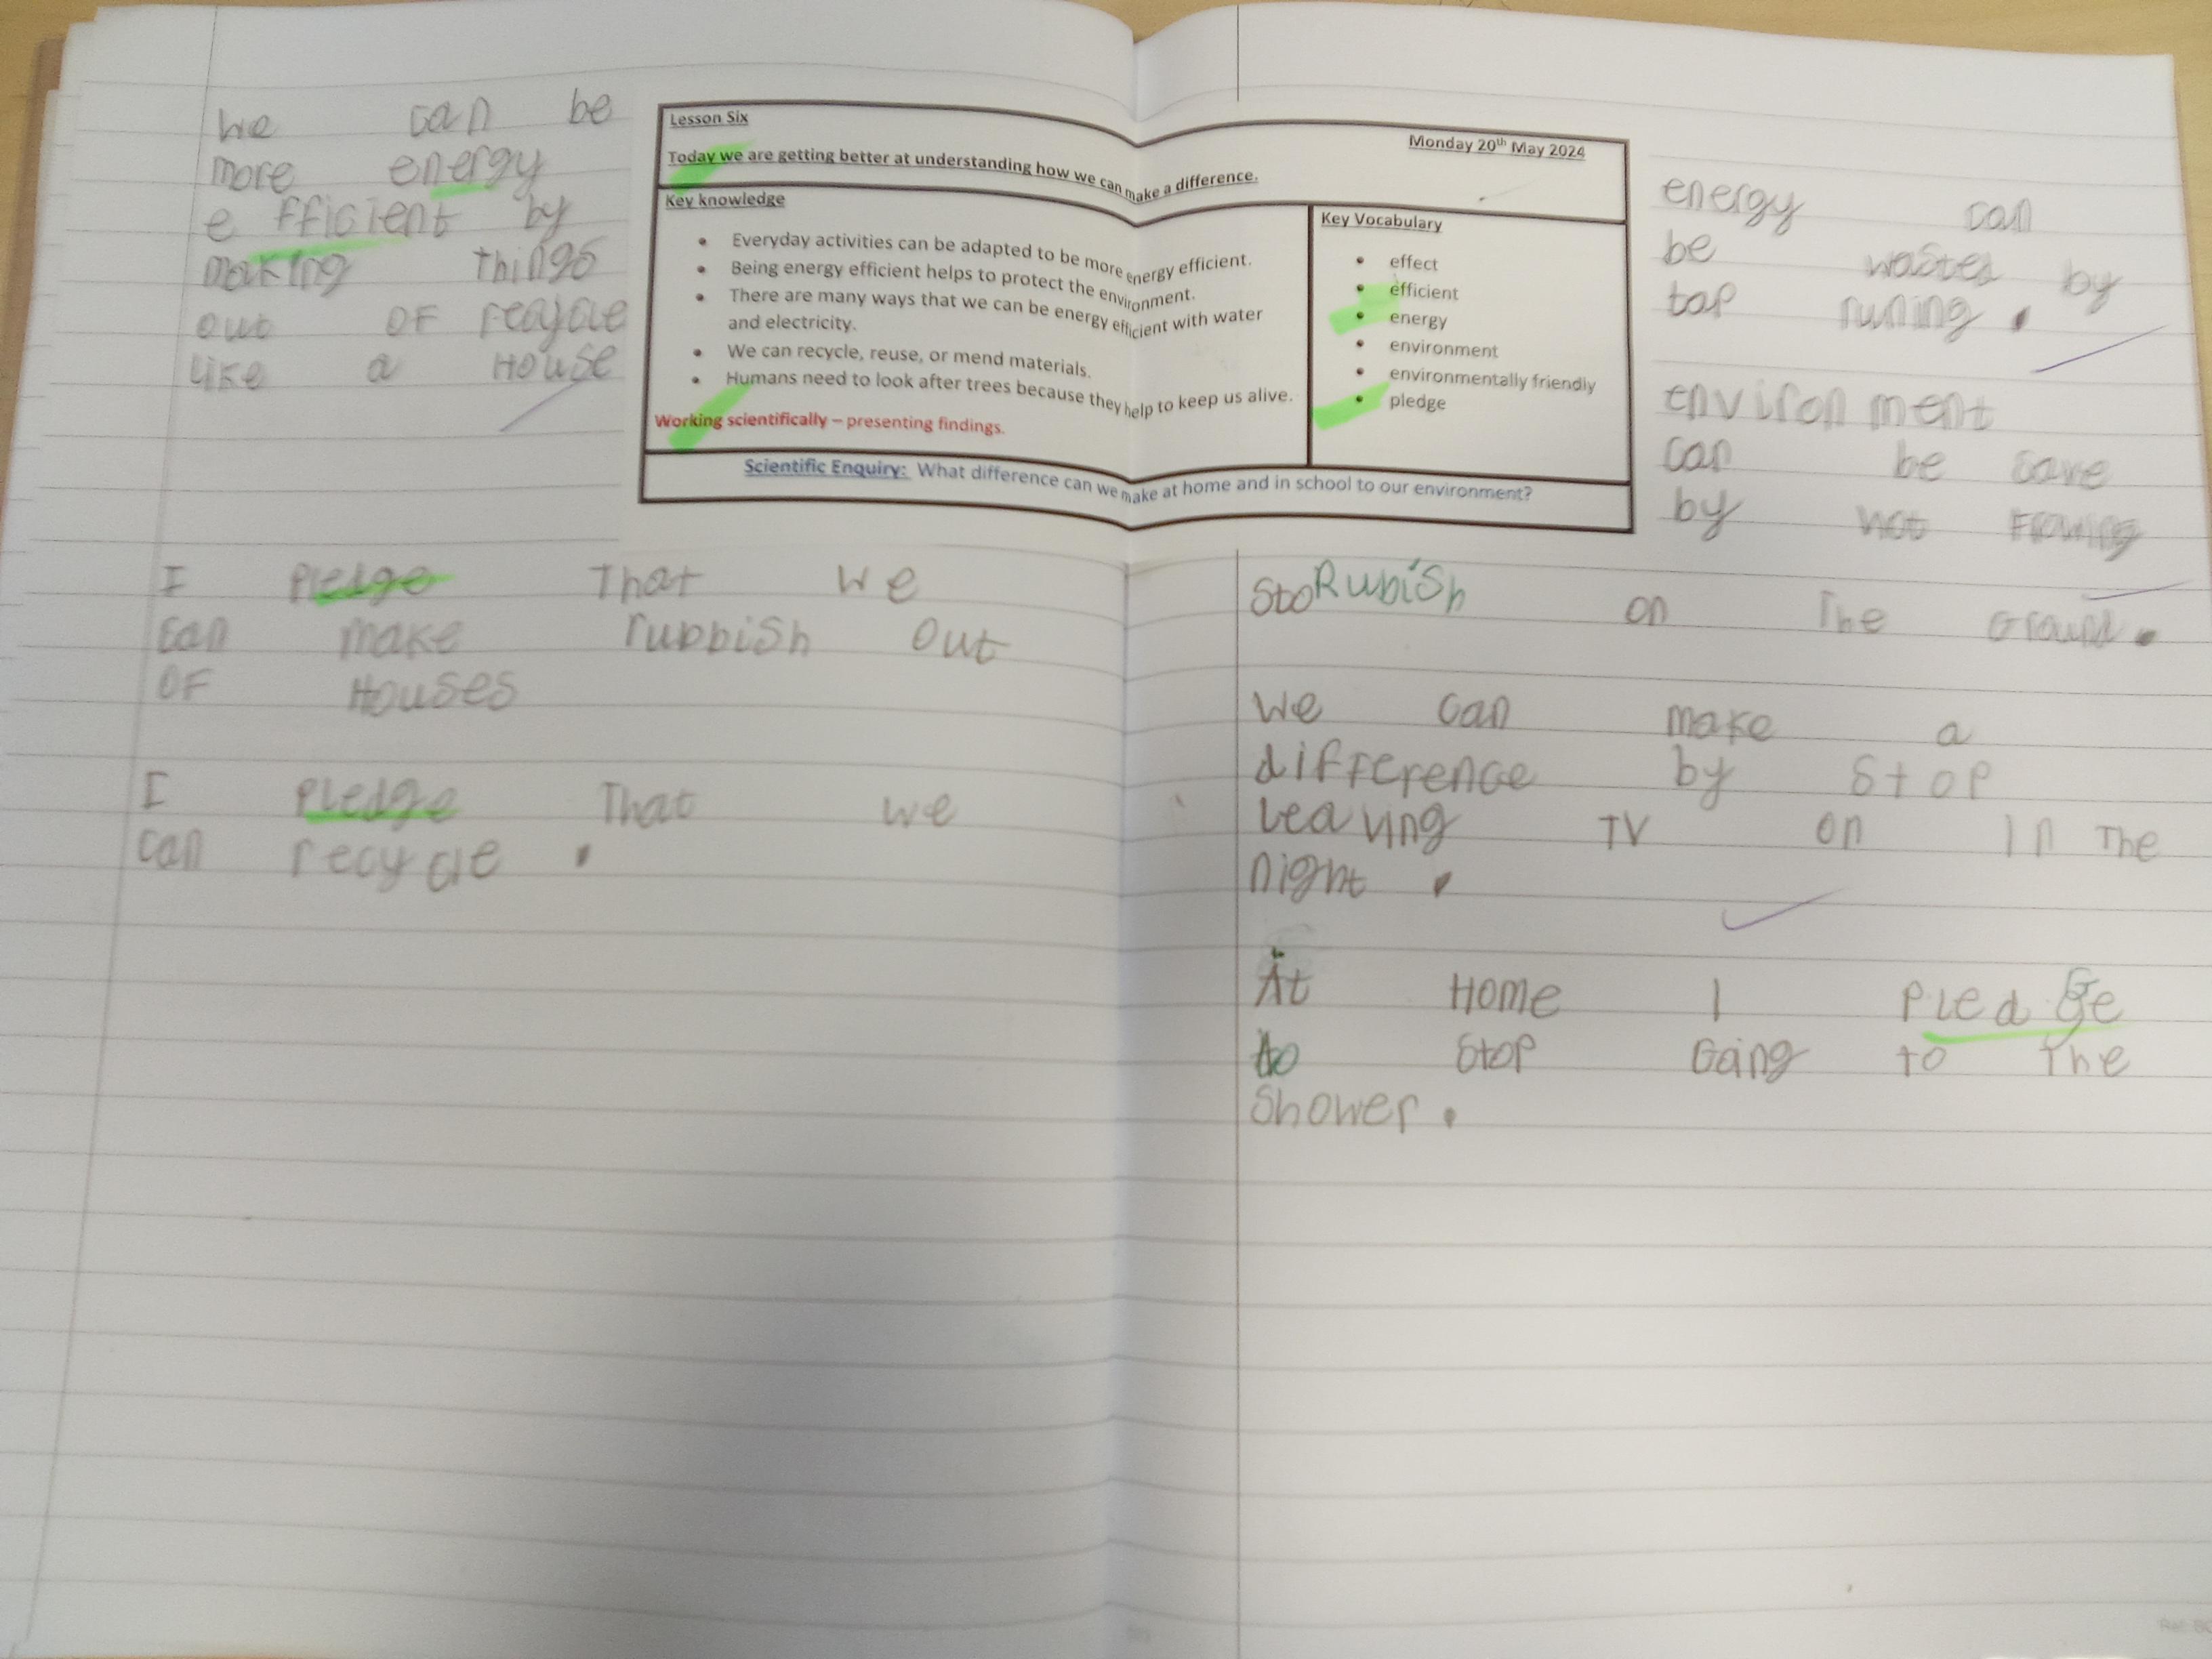 we can be
more energy
efficient by
making things
out of recycle
like a House
Lesson Six
Monday 20th May 2024
Today we are getting better at understanding how we can make a difference.
Key knowledge
• Everyday activities can be adapted to be more energy efficient.
• Being energy efficient helps to protect the environment.
• There are many ways that we can be energy efficient with water
and electricity.
• We can recycle, reuse, or mend materials.
• Humans need to look after trees because they help to keep us alive.
Working scientifically – presenting findings.
Key Vocabulary
• effect
• efficient
• energy
• environment
• environmentally friendly
• pledge
Scientific Enquiry: What difference can we make at home and in school to our environment?
I Pledge That we
can make rubbish out
OF Houses
I Pledge That we
can recycle .
energy can
be wasted by
tap runing .
environment
can be save
by not
Rubish on The Ground.
We can make a
difference by Stop
Leaving TV on in The
night .
At Home I PledGe
to Stop Going to The
Shower .